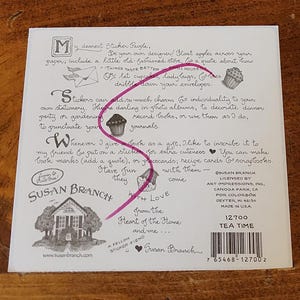 My dearest Sticker People,
Do be your own designer! Plant apples across your
paper, include a little old-fashioned stove for a quote about
THINGS TASTE BETTER
Or let cupcakes, ladybugs,
dribble down your envelopes.
Stickers can add so much charm & individuality to your
own stationery. Use them on photo albums, to decorate dinner
party or garden record books, or use them as I do,
to punctuate your journals.
Whenever I give a book as a gift, I like to inscribe it to
my friends & put on a sticker for extra cuteness ♥ You can make
book marks (add a quote), or postcards, recipe cards & scrapbooks
Have fun with them —
they come
WITH LOVE
from the
Heart of the Home
and me...
♥ Susan Branch
A FELLOW
STICKER FIEND
SUSAN BRANCH
www.susanbranch.com
©SUSAN BRANCH
LICENSED BY
ART IMPRESSIONS, INC.
CANOGA PARK, CA
FOR COLORBOK
DEXTER, MI 48130
MADE IN U.S.A.
12700
TEA TIME
7 65468-12700 2